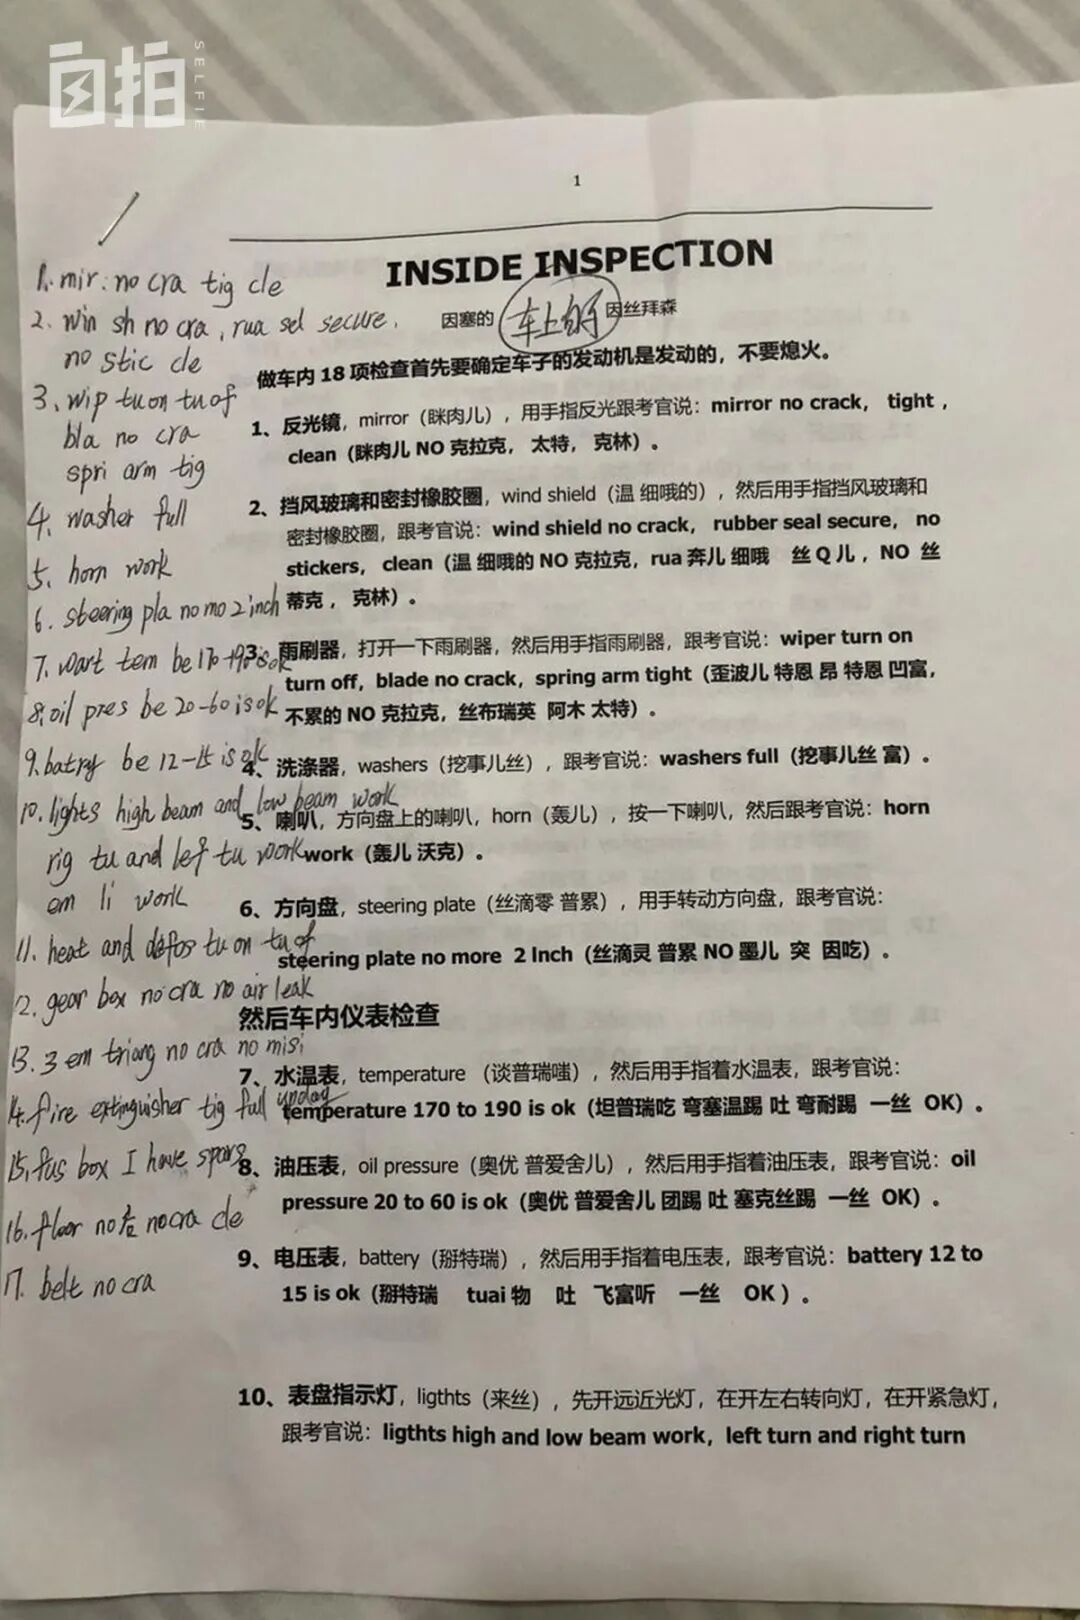 自拍
SELFIE
1
INSIDE INSPECTION
因塞的 因丝拜森
做车内 18 项检查首先要确定车子的发动机是发动的，不要熄火。
1、反光镜，mirror（眯肉儿），用手指反光跟考官说：mirror no crack， tight，
clean（眯肉儿 NO 克拉克， 太特， 克林）。
2、挡风玻璃和密封橡胶圈，wind shield（温 细哦的），然后用手指挡风玻璃和
密封橡胶圈，跟考官说：wind shield no crack， rubber seal secure， no
stickers， clean（温 细哦的 NO 克拉克，rua 奔儿 细哦 丝 Q 儿 ，NO 丝
蒂克 ， 克林）。
3、雨刷器，打开一下雨刷器，然后用手指雨刷器，跟考官说：wiper turn on
turn off，blade no crack，spring arm tight（歪波儿 特恩 昂 特恩 凹富，
不累的 NO 克拉克，丝布瑞英 阿木 太特）。
4、洗涤器，washers（挖事儿丝），跟考官说：washers full（挖事儿丝 富）。
5、喇叭，方向盘上的喇叭，horn（轰儿），按一下喇叭，然后跟考官说：horn
work（轰儿 沃克）。
6、方向盘，steering plate（丝滴零 普累），用手转动方向盘，跟考官说：
steering plate no more 2 Inch（丝滴灵 普累 NO 墨儿 突 因吃）。
然后车内仪表检查
7、水温表，temperature （谈普瑞嗤），然后用手指着水温表，跟考官说：
temperature 170 to 190 is ok（坦普瑞吃 弯塞温踢 吐 弯耐踢 一丝 OK）。
8、油压表，oil pressure（奥优 普爱舍儿），然后用手指着油压表，跟考官说：oil
pressure 20 to 60 is ok（奥优 普爱舍儿 团踢 吐 塞克丝踢 一丝 OK）。
9、电压表，battery（掰特瑞），然后用手指着电压表，跟考官说：battery 12 to
15 is ok（掰特瑞 tuai 物 吐 飞富听 一丝 OK ）。
10、表盘指示灯，ligthts（来丝），先开远近光灯，在开左右转向灯，在开紧急灯，
跟考官说：ligthts high and low beam work，left turn and right turn
1. mir: no cra tig cle
2. win sh no cra, rua sel secure.
no stic cle
3. wip tu on tu of
bla no cra
spri arm tig
4. washer full
5. horn work
6. steering pla no mo 2 inch
7. wart tem be 170-190 is ok
8. oil pres be 20-60 is ok
9. batry be 12-15 is ok
10. lights high beam and low beam work
rig tu and lef tu work
em li work
11. heat and defos tu on tu of
12. gear box no cra no air leak
13. 3 em triang no cra no misi
14. fire extinguisher tig full
15. fus box I have spars
16. floor no cra cle
17. belt no cra